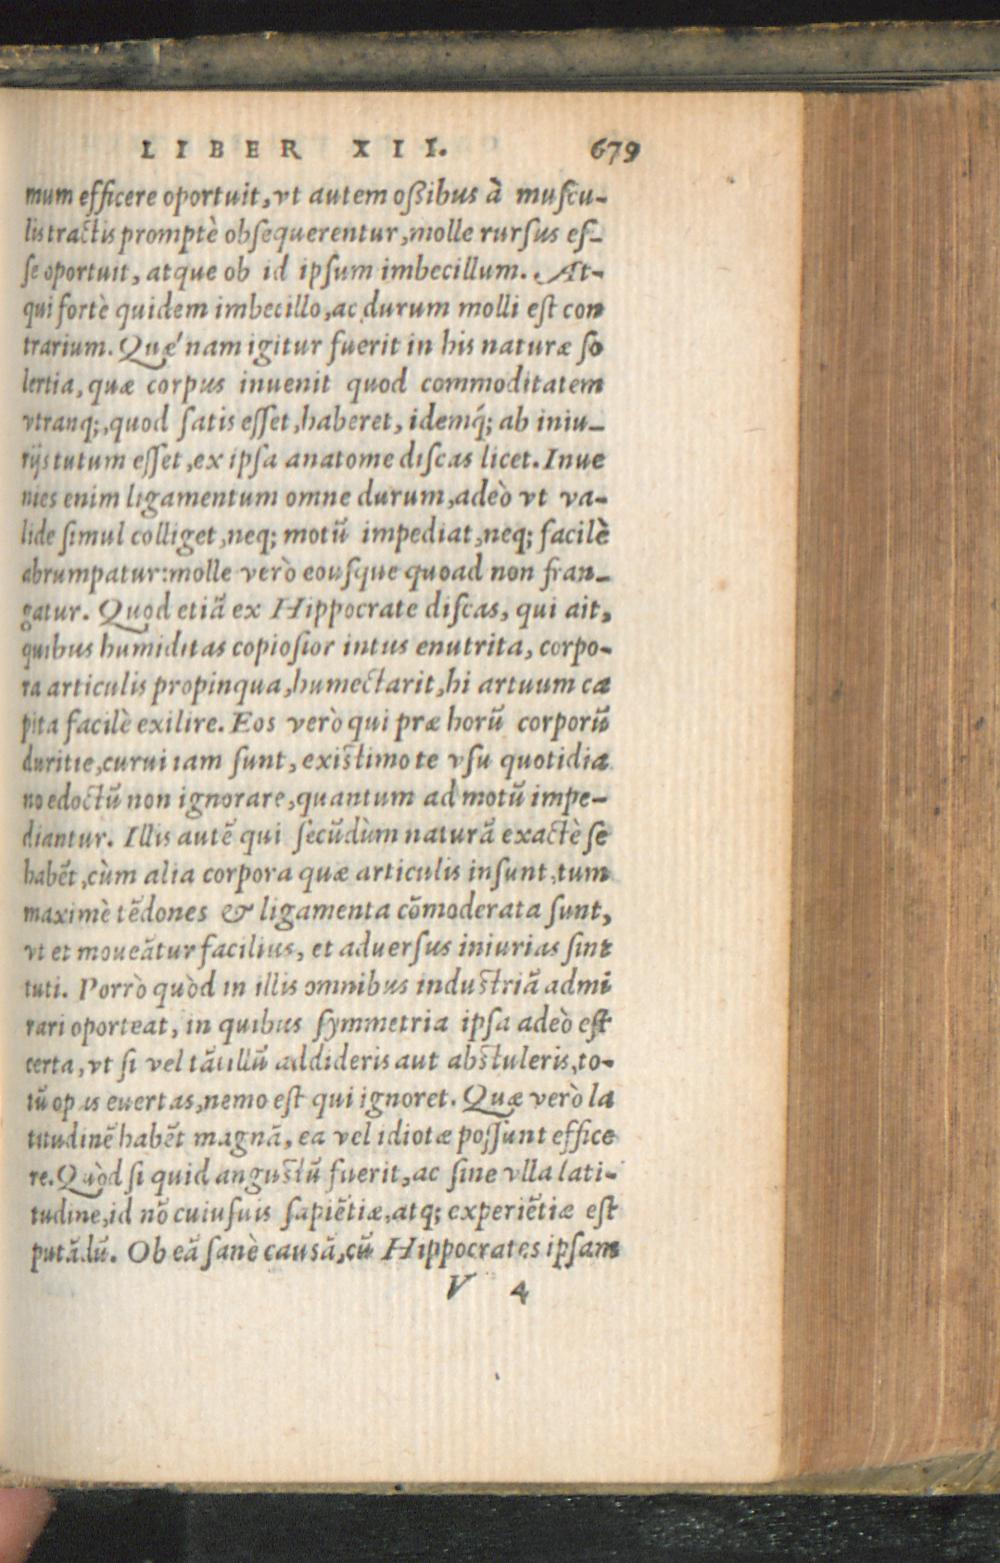 LIBER XII. 679
mum efficere oportuit, vt autem oſsibus à muſcu-
lis tractis promptè obſequerentur, molle rurſus eſ-
ſe oportuit, atque ob id ipſum imbecillum. At-
qui fortè quidem imbecillo, ac durum molli eſt con
trarium. Quæ'nam igitur fuerit in his naturæ ſo
lertia, quæ corpus inuenit quod commoditatem
vtranq;, quod ſatis eſſet, haberet, idemq́; ab iniu-
rijs tutum eſſet, ex ipſa anatome diſcas licet. Inue
nies enim ligamentum omne durum, adeò vt va-
lide ſimul colliget, neq; motū impediat, neq; facilè
abrumpatur: molle verò eouſque quoad non fran-
gatur. Quod etiā ex Hippocrate diſcas, qui ait,
quibus humiditas copioſior intus enutrita, corpo-
ra articulis propinqua, humectarit, hi artuum ca
pita facilè exilire. Eos verò qui præ horū corporū
duritie, curui iam ſunt, existimo te vſu quotidia
no edoctū non ignorare, quantum ad motū impe-
diantur. Illis autē qui ſecūdùm naturā exactè ſe
habēt, cùm alia corpora quæ articulis inſunt, tum
maximè tēdones & ligamenta cōmoderata ſunt,
vt et moueātur facilius, et aduerſus iniurias ſint
tuti. Porrò quòd in illis omnibus industriā admi
rari oporteat, in quibus ſymmetria ipſa adeò eſt
certa, vt ſi vel tātillū addideris aut abstuleris, to-
tū opus euertas, nemo eſt qui ignoret. Quæ verò la
titudinē habēt magnā, ea vel idiotæ poſſunt effice
re. Quòd ſi quid angustū fuerit, ac ſine vlla lati-
tudine, id nō cuiuſuis ſapiētiæ, atq; experiētiæ eſt
putādū. Ob eā ſanè cauſā, cū Hippocrates ipſam
V 4